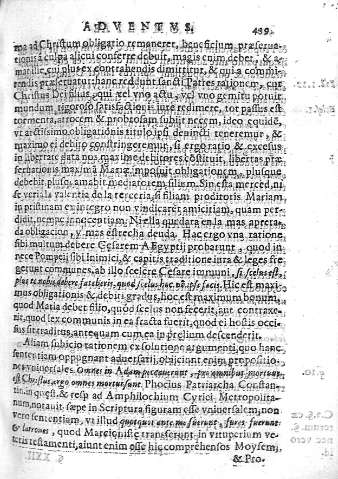 ADVENTVS. 489.
ma ad Christum obligatio remaneret, beneficium præserua-
tionis à culpa aliena concludere debuit, magis enim debet, & a-
mat ille cui plus ex contrahendis dimittitur, & qui a commit-
tendis præseruatur: hanc reddunt sancti Patres rationem, cur
Christus Dominus, qui vel vno actu, vel vno gemitu poterat
mundum rigoroso satisfactionis iure redimere, tot passus est
tormenta, atrocem & probrosam subijt necem, ideo equidē,
vt arctissimo obligationis titulo ipsi deuincti teneremur, &
maximo ei debito constringeremur, si ergo ratio & excesus
in libertate data nos maxime debitores constituit, libertas præ-
seruationis maximā Mariæ imposuit obligationem, plusque
debebit plus amabit mediatorem filium. Sin esta merced, ni
se veria la valentia de la terceria, si filiam proditoris Mariam,
in pristinam ex integro non vindicaret amicitiam, quam per-
didit, nempe innocentiam. Ni ella quedara en la mas apreta-
da obligacion, y mas estrecha deuda. Hac ergo vna ratione
sibi multum debere Cęsarem Aegyptij probarunt, quod in-
tere Pompeij sibi inimici, & capitis traditione iura & leges fre-
gerunt communes, ab illo scelere Cesare immuni, si scelus est,
plus te nobis debere fateberis, quod scelus hoc nō ipse facis. Hic est maxi-
mus obligationis & debiti gradus, hoc est maximum bonum,
quod Maria debet filio, quod scelus non fecerit, aut contraxe-
rit, quod lex communis in ea fracta fuerit, quod ei hostis occi-
sus sit traditus, antequam cum ea in prælium descenderit.
Aliam subijcio rationem ex solutione argumenti, quo hanc
sententiam oppugnant aduersarij, obijciunt enim propositio-
nes vniuersales Omnes in Adam peccauerunt, pro omnibus mortuus
est Christus, ergo omnes mortui sunt. Phocius Patriarcha Constan-
tin. in quæst. & resp. ad Amphilochium Cyrici Metropolita-
num, notauit sæpe in Scriptura figuram esse vniuersalem, non
vero sententiam, vt illud quotquot ante me fuerunt, fures fuerunt
& latrones, quod Marcionistæ transferunt in vituperium ve-
teris testamenti, aiunt enim esse hic comprehensos Moysem,
& Pro-